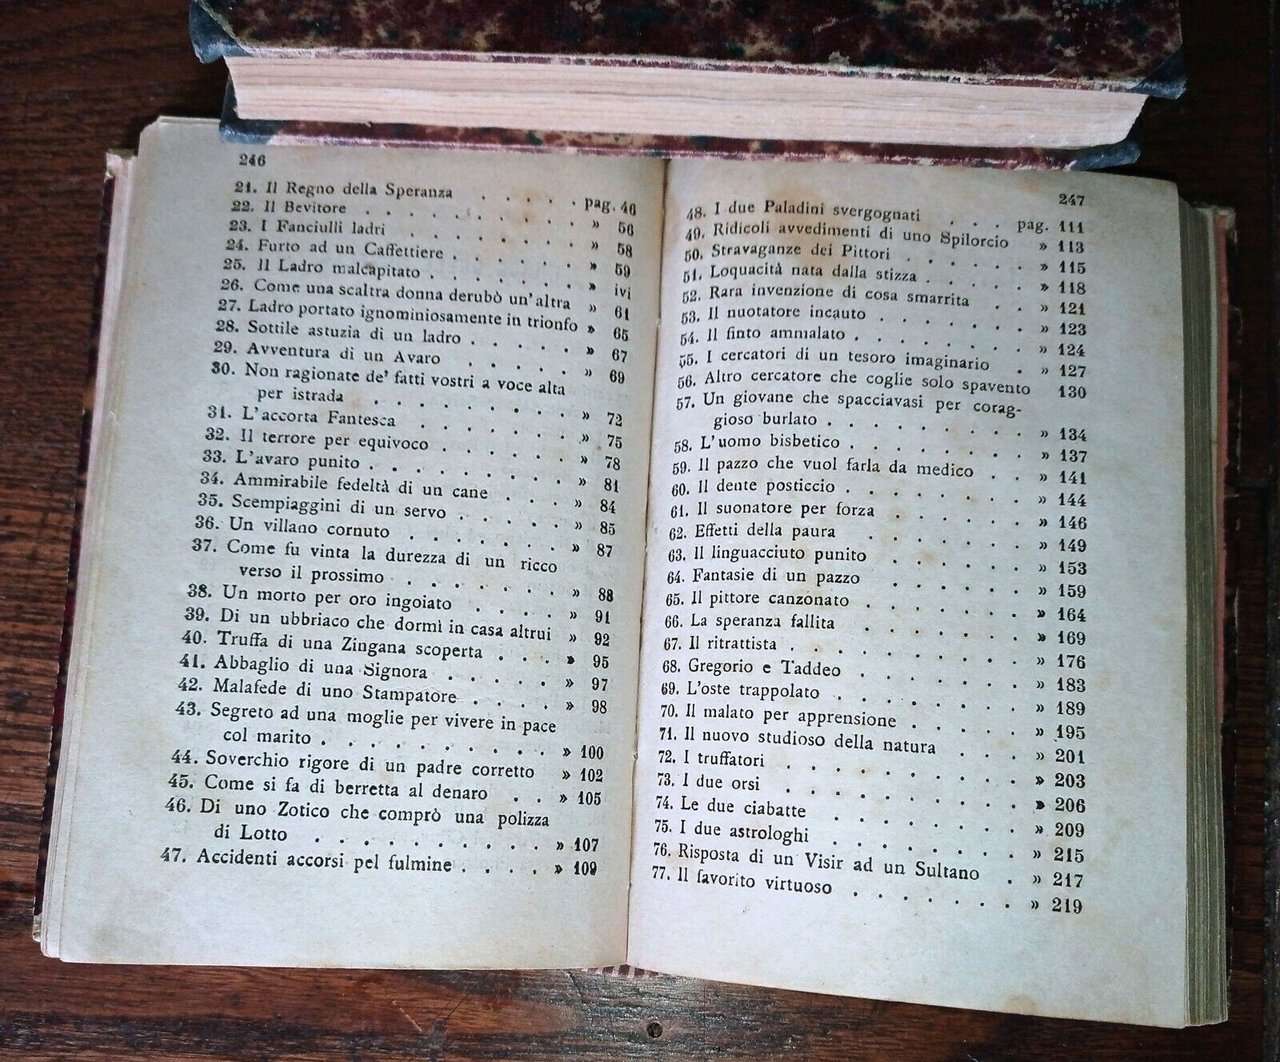 246
21. Il Regno della Speranza . . . . . pag. 46
22. Il Bevitore . . . . . . . . . . » 56
23. I Fanciulli ladri . . . . . . . . » 58
24. Furto ad un Caffettiere . . . . . . » 59
25. Il Ladro malcapitato . . . . . . . » ivi
26. Come una scaltra donna derubò un'altra » 61
27. Ladro portato ignominiosamente in trionfo » 65
28. Sottile astuzia di un ladro . . . . . » 67
29. Avventura di un Avaro . . . . . . » 69
30. Non ragionate de' fatti vostri a voce alta
per istrada . . . . . . . . . » 72
31. L'accorta Fantesca . . . . . . . » 75
32. Il terrore per equivoco . . . . . . » 78
33. L'avaro punito . . . . . . . . . » 81
34. Ammirabile fedeltà di un cane . . . . » 84
35. Scempiaggini di un servo . . . . . . » 85
36. Un villano cornuto . . . . . . . » 87
37. Come fu vinta la durezza di un ricco
verso il prossimo . . . . . . . » 88
38. Un morto per oro ingoiato . . . . . » 91
39. Di un ubbriaco che dormì in casa altrui » 92
40. Truffa di una Zingana scoperta . . . » 95
41. Abbaglio di una Signora . . . . . . » 97
42. Malafede di uno Stampatore . . . . . » 98
43. Segreto ad una moglie per vivere in pace
col marito . . . . . . . . . . » 100
44. Soverchio rigore di un padre corretto » 102
45. Come si fa di berretta al denaro . . » 105
46. Di uno Zotico che comprò una polizza
di Lotto . . . . . . . . . . » 107
47. Accidenti accorsi pel fulmine . . . . » 109
247
48. I due Paladini svergognati . . . pag. 111
49. Ridicoli avvedimenti di uno Spilorcio » 113
50. Stravaganze dei Pittori . . . . . . » 115
51. Loquacità nata dalla stizza . . . . . » 118
52. Rara invenzione di cosa smarrita . . . » 121
53. Il nuotatore incauto . . . . . . . » 123
54. Il finto ammalato . . . . . . . . » 124
55. I cercatori di un tesoro imaginario . » 127
56. Altro cercatore che coglie solo spavento 130
57. Un giovane che spacciavasi per corag-
gioso burlato . . . . . . . . . » 134
58. L'uomo bisbetico . . . . . . . . » 137
59. Il pazzo che vuol farla da medico . . » 141
60. Il dente posticcio . . . . . . . . » 144
61. Il suonatore per forza . . . . . . » 146
62. Effetti della paura . . . . . . . » 149
63. Il linguacciuto punito . . . . . . » 153
64. Fantasie di un pazzo . . . . . . » 159
65. Il pittore canzonato . . . . . . . » 164
66. La speranza fallita . . . . . . . » 169
67. Il ritrattista . . . . . . . . . . » 176
68. Gregorio e Taddeo . . . . . . . » 183
69. L'oste trappolato . . . . . . . . » 189
70. Il malato per apprensione . . . . . » 195
71. Il nuovo studioso della natura . . . » 201
72. I truffatori . . . . . . . . . . » 203
73. I due orsi . . . . . . . . . . » 206
74. Le due ciabatte . . . . . . . . » 209
75. I due astrologhi . . . . . . . . » 215
76. Risposta di un Visir ad un Sultano . » 217
77. Il favorito virtuoso . . . . . . . » 219